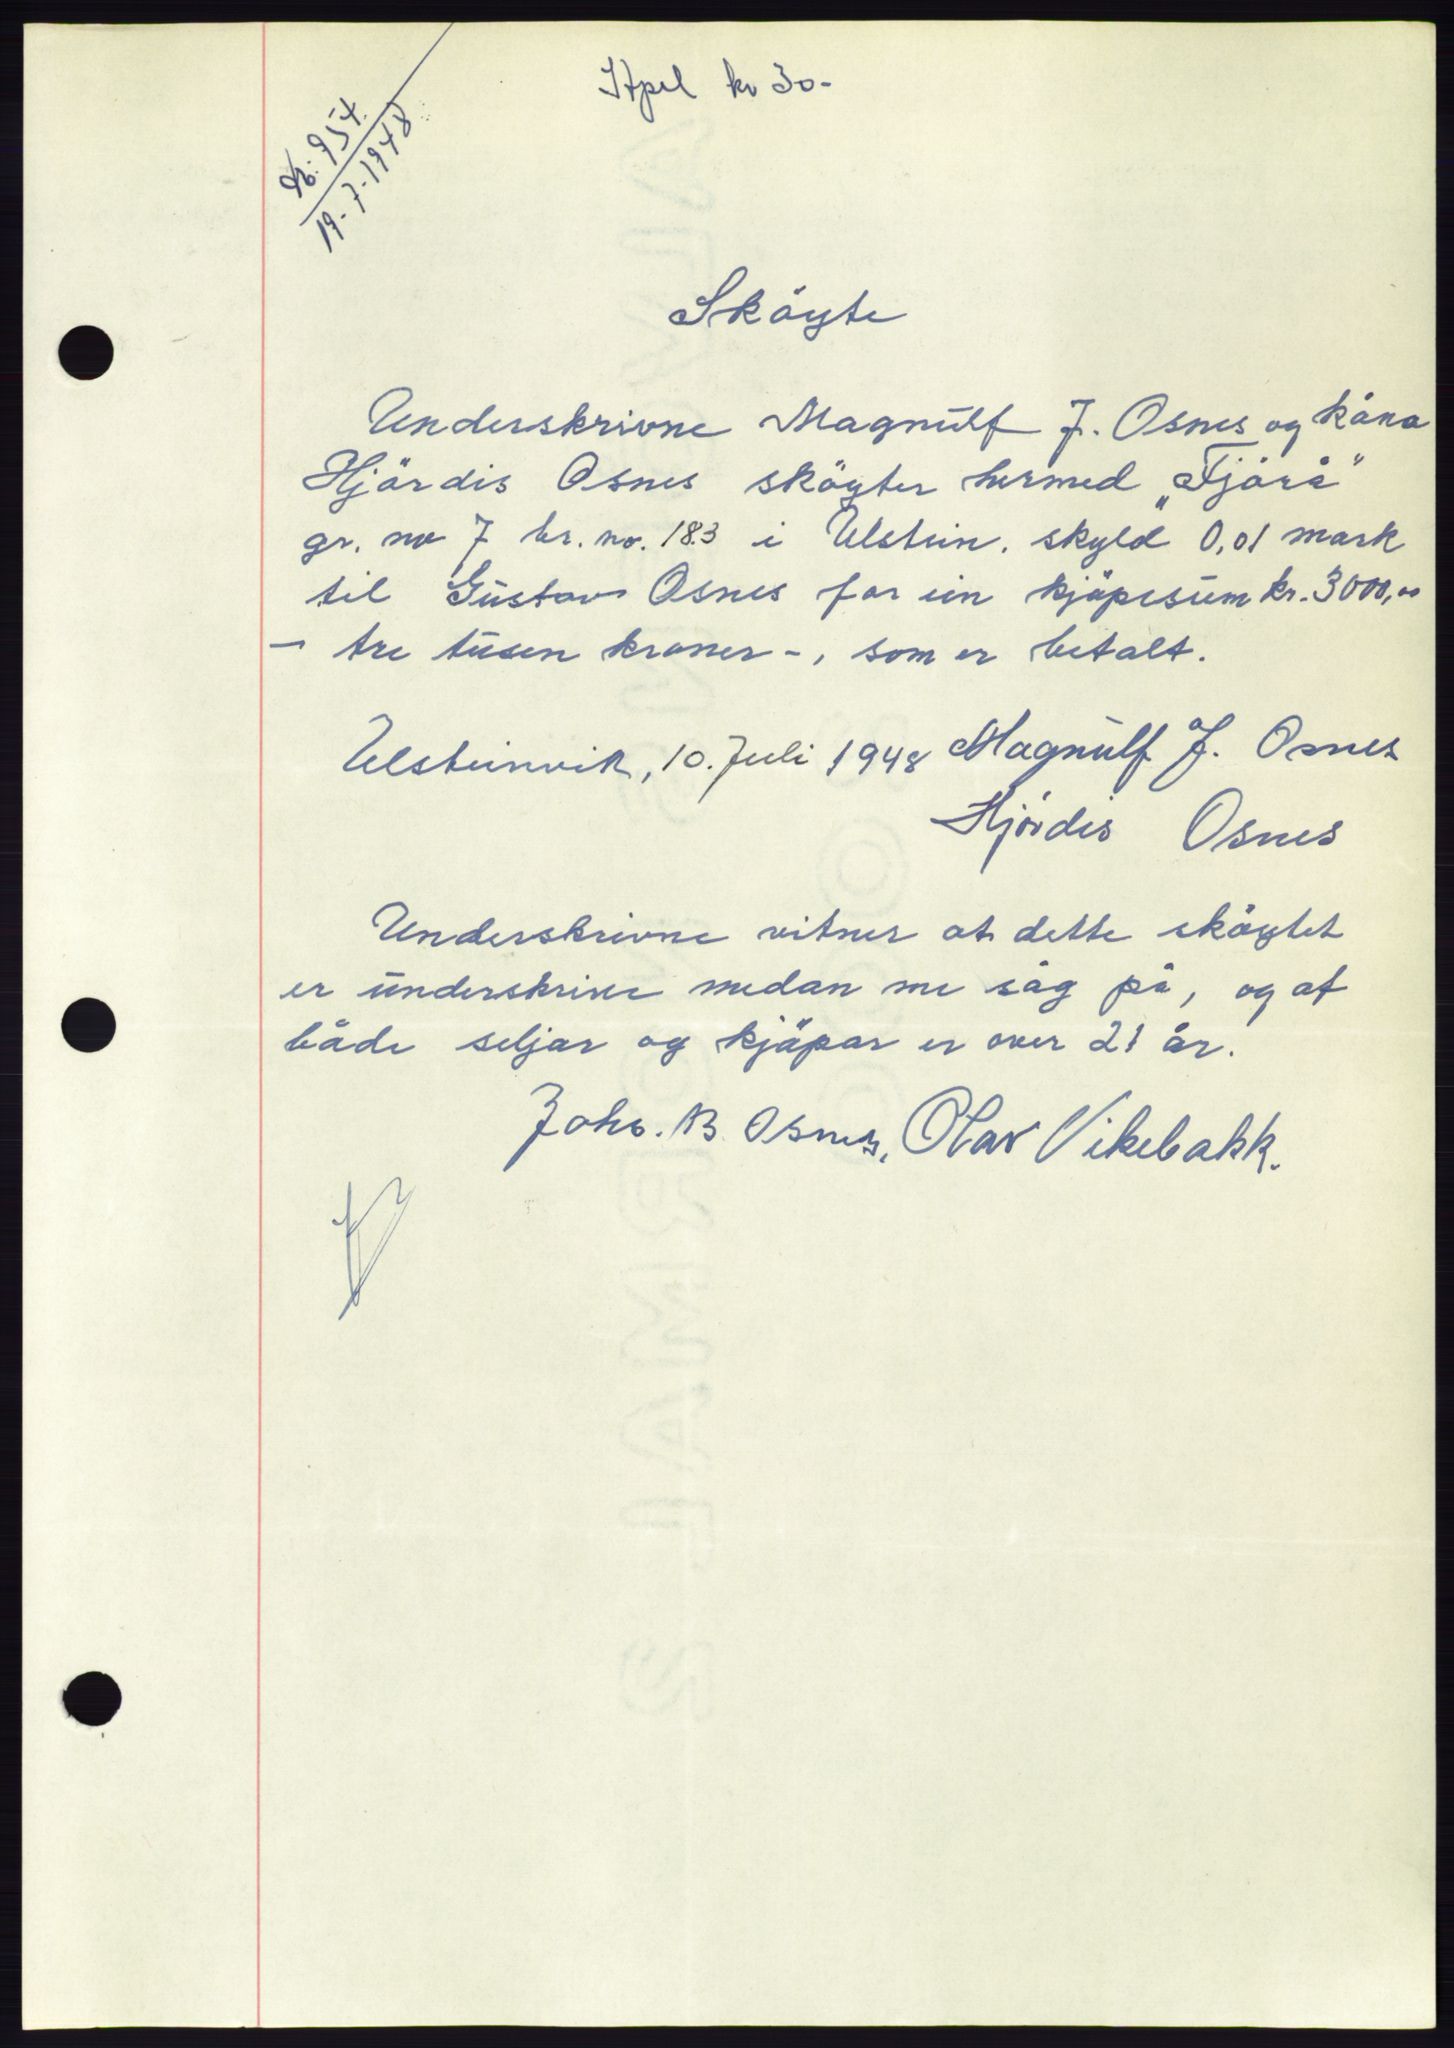 Stpel kr 30-
Nr. 954.
19-7-1948
Sköyte
Underskrivne Magnulf J. Osnes og kåna
Hjördis Osnes sköyter hermed „Fjörå"
gr. no 7 br. no. 183 i Ulstein. skyld 0,01 mark
til Gustav Osnes for ein kjöpesum kr. 3000,00
- tre tusen kroner -, som er betalt.
Ulsteinvik, 10. Juli 1948 Magnulf J. Osnes
Hjördis Osnes
Underskrivne vitner at dette sköytet
er underskrive medan me såg på, og at
både seljar og kjöpar er over 21 år.
Johs. B. Osnes, Olav Vikebakk.